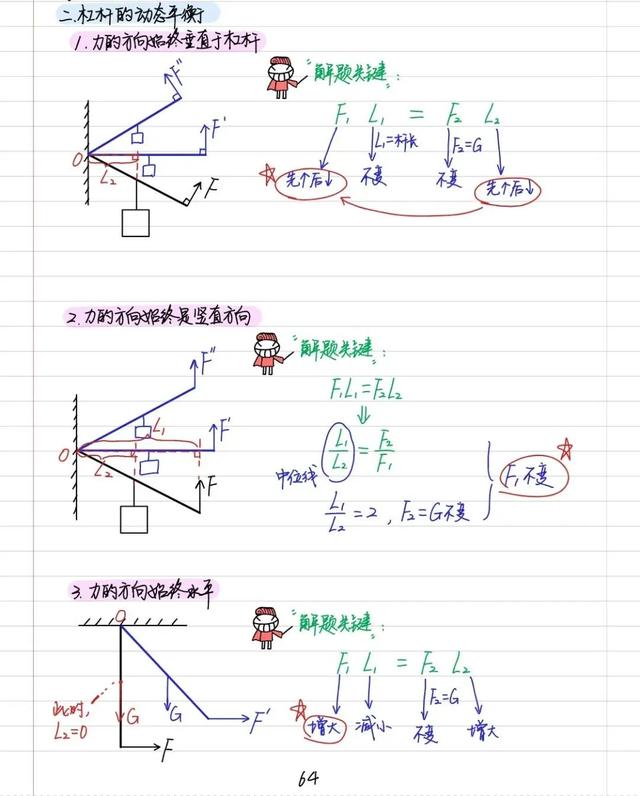 二.杠杆的动态平衡
1.力的方向始终垂直于杠杆
"解题关键:
F" F' F
O L₂
F₁ L₁ = F₂ L₂
L₁=杆长 F₂=G
先个后↓ 不变 不变 先个后↓
2.力的方向始终是竖直方向
"解题关键:
F" F' F
O L₁ L₂
F₁L₁=F₂L₂
⇓
L₁/L₂=F₂/F₁
中位线
L₁/L₂=2,F₂=G不变
F₁不变
3.力的方向始终水平
"解题关键:
O
此时,
L₂=0
G G F F'
F₁ L₁ = F₂ L₂
F₂=G
增大 减小 不变 增大
64